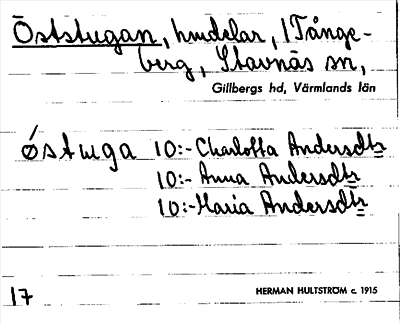 Öststugan, hmdelar, i Tånge-
berg, Stavnäs sn,
Gillbergs hd, Värmlands län
östuga 10:- Charlotta Andersdtr
10:- Anna Andersdtr
10:- Maria Andersdtr
17
HERMAN HULTSTRÖM c. 1915